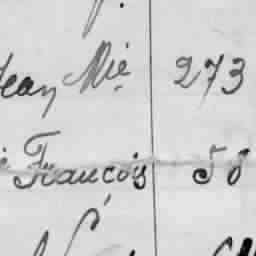 Jean Mie 273
François 58